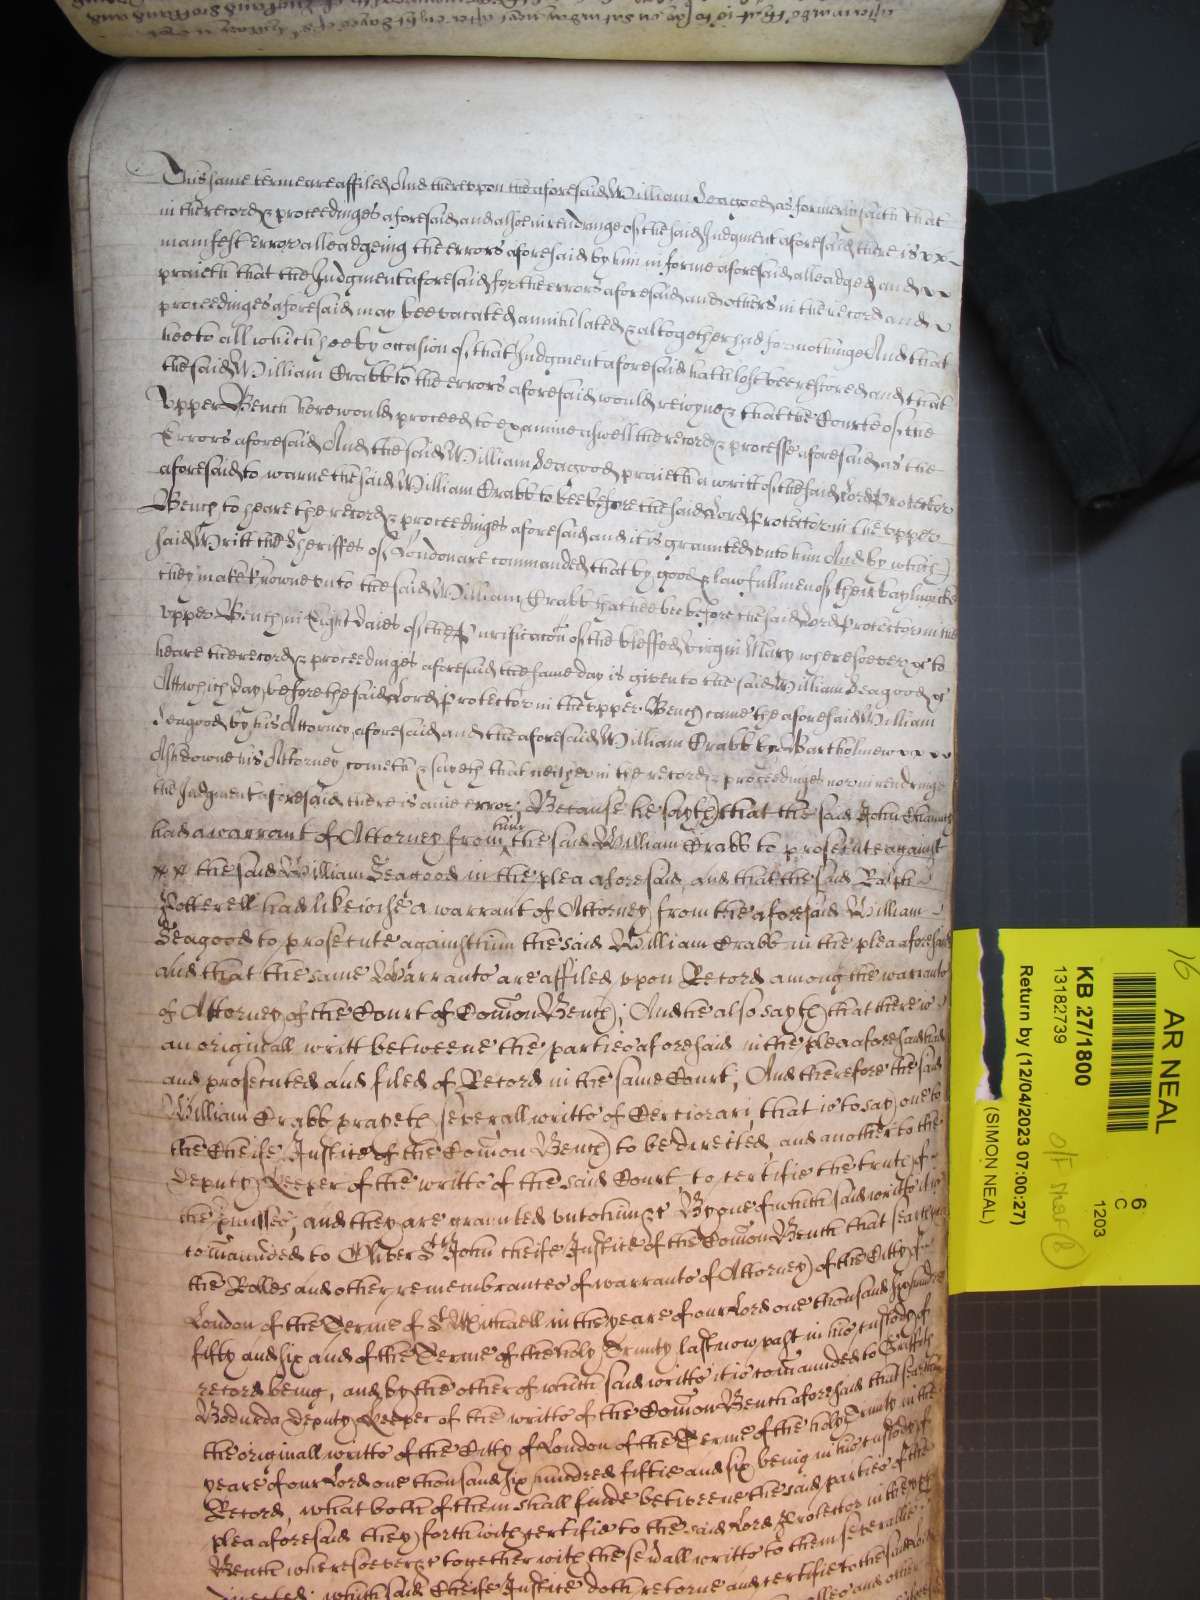 This same terme are affiled And therevpon the aforesaid William Seagood as formerly saith that
in the record & proceedinges aforesaid and alsoe in rendringe of the said Judgment aforesaid there is xx
manifest Error alleadgeing the errors aforesaid by him in forme aforesaid alleadged and xx
praieth that the Judgment aforesaid for the errors aforesaid and others in the record and
proceedinges aforesaid may bee vacated annihilated & altogether had for nothinge And that
hee to all which hee by occasion of that Judgment aforesaid hath lost bee restored and that
the said William Crabb to the errors aforesaid would reioyne & that the Courte of the
Vpper Bench here would proceed to examine aswell the record & processe aforesaid as the
Errors aforesaid And the said William Seagood praieth a writt of the said Lord Protector
aforesaid to warne the said William Crabb to bee before the said Lord Protector in the vpper
Bench to heare the record & proceedinges aforesaid and it is graunted vnto him And by which
said Writt the Sheriffes of London are commanded that by good & lawfull men of their baylywicke
they make knowne vnto the said William Crabb that hee bee before the said Lord Protector in the
vpper Bench in Eight daies of the Purificacon of the blessed virgin Mary wheresoever &c to
heare the record & proceedinges aforesaid the same day is given to the said William Seagood &c
Att which day before the said Lord Protector in the vpper Bench came the aforesaid William
Seagood by his Attorney aforesaid and the aforesaid William Crabb by Bartholmew xx xx
Ashdowne his Attorney cometh & sayeth that neither in the record & proceedinges nor in rendringe
the Judgment aforesaid there is anie error; Because he sayth that the said John
had a warrant of Attorney from him the said William Crabb to prosecute against
xx the said William Seagood in the plea aforesaid, and that the said Ralph
Potterell had likewise a warrant of Attorney from the aforesaid William
Seagood to prosecute against him the said William Crabb in the plea aforesaid
and that the same Warrants are affiled vpon Record among the warrants
of Attorney of the Court of Comon Bench; And he also sayth that there is
an originall writt betweene the parties aforesaid in the plea aforesaid had
and prosecuted and filed of Record in the same Court, And therefore the said
William Crabb prayeth severall writts of Certiorari, that is to say, one to
the Cheife Justice of the Comon Bench to be directed, and another to the
deputy Keeper of the writts of the said Court to certifie the truth of
the premisses, and they are graunted vnto him &c By one of which said writts it is
comaunded to Oliver St John cheife Justice of the Comon Bench that searching
the Rolles and other remembrances of warrants of Attorney of the Citty of
London of the Terme of St Michaell in the yeare of our Lord one thousand six hundred
fifty and six and of the Terme of the holy Trinity last now past in his custody of
record being, and by the other of which said writts it is comaunded to Griffith
Bodurda deputy Keeper of the writts of the Comon Bench aforesaid that searching
the originall writts of the Citty of London of the Terme of the holy Trinity in the
yeare of our Lord one thousand six hundred fiftie and six being in his custody of
Record, what both of them shall finde betweene the said parties of the
plea aforesaid they forthwith certifie to the said Lord Protector in the vpper
Bench wheresoever &c together with the severall writts to them severallie
directed; which said Cheife Justice doth returne and certifie to the said Lord
AR NEAL
16
6
C
1203
KB 27/1800
13182739
Return by (12/04/2023 07:00:27)
(SIMON NEAL)